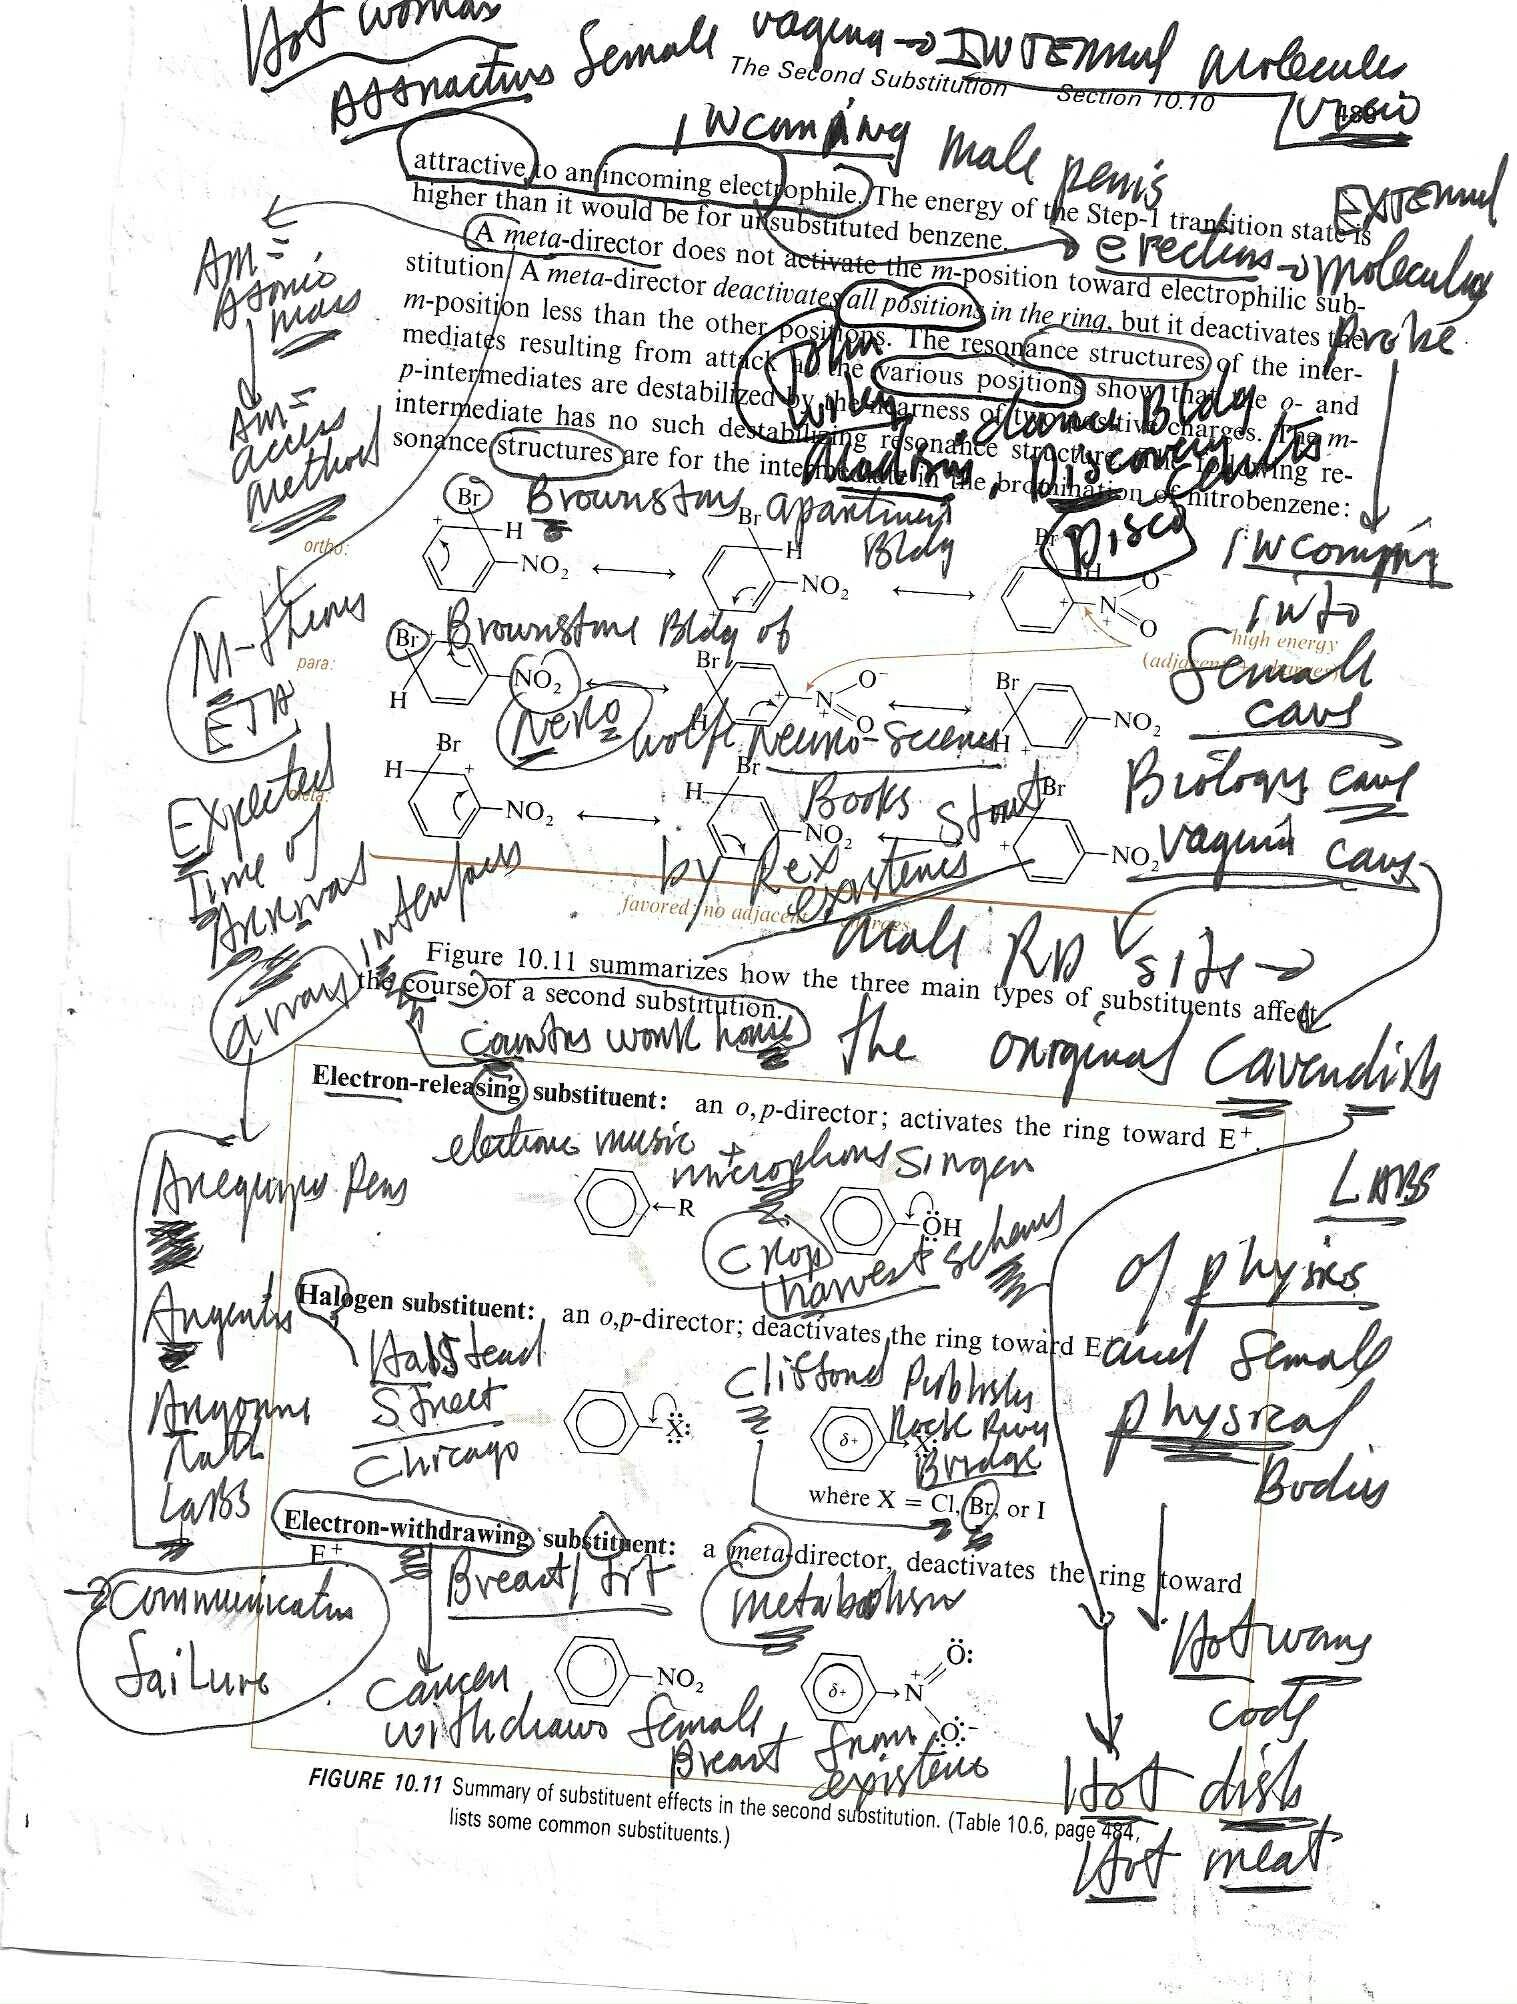 Hot woman
Attractive female vagina → INTERNAL molecules
The Second Substitution Section 10.10
incoming male penis
attractive to an incoming electrophile. The energy of the Step-1 transition state is
higher than it would be for unsubstituted benzene.
EXTERNAL
A meta-director does not activate the m-position toward electrophilic sub-
erection → molecular
stitution. A meta-director deactivates all positions in the ring, but it deactivates the
probe
m-position less than the other positions. The resonance structures of the inter-
mediates resulting from attack at the various positions show that the o- and
p-intermediates are destabilized by the nearness of two positive charges. The m-
intermediate has no such destabilizing resonance structure. The following re-
sonance structures are for the intermediate in the bromination of nitrobenzene:
AM =
Atomic
mass
AM =
access
method
John
dance Bldg
Discovery
Disco
Br Brownstone apartment
Bldg
ortho:
Br H NO2
Br H NO2
Br H N O− O
incoming
into
female
cave
high energy
Brownstone Bldg of
para:
Br H NO2
Br H N O− O
Br H NO2
Nero Wolfe Neuro-Science
Books
by Rex Stout
existence
Biology cave
vagina cave
M-theory
ETA
Expected
Time of
Arrival
meta:
Br H NO2
Br H NO2
Br NO2
favored: no adjacent + charges
array interface
male RD site →
Figure 10.11 summarizes how the three main types of substituents affect
the course of a second substitution.
country work house the original Cavendish
LABS
of physics
and female
physical
Bodies
Electron-releasing substituent: an o,p-director; activates the ring toward E+.
electronic music + microphone singer
←R
ÖH
crop
harvest scheme
Arequipa Peru
Argentis
Argonne
Natl
LABS
→ Communication
failure
Halogen substituent: an o,p-director; deactivates the ring toward E+
Halstead
Street
Chicago
Clifford Publisher
Rock River
Bridge
X:
δ+ X:
where X = Cl, Br, or I
Electron-withdrawing substituent: a meta-director, deactivates the ring toward
E+
Breast/tit
metabolism
NO2
δ+ → N Ö: Ö:−
cancer
withdraws female
Breast from
existence
Hot wave
code
Hot dish
Hot meat
FIGURE 10.11 Summary of substituent effects in the second substitution. (Table 10.6, page 484,
lists some common substituents.)